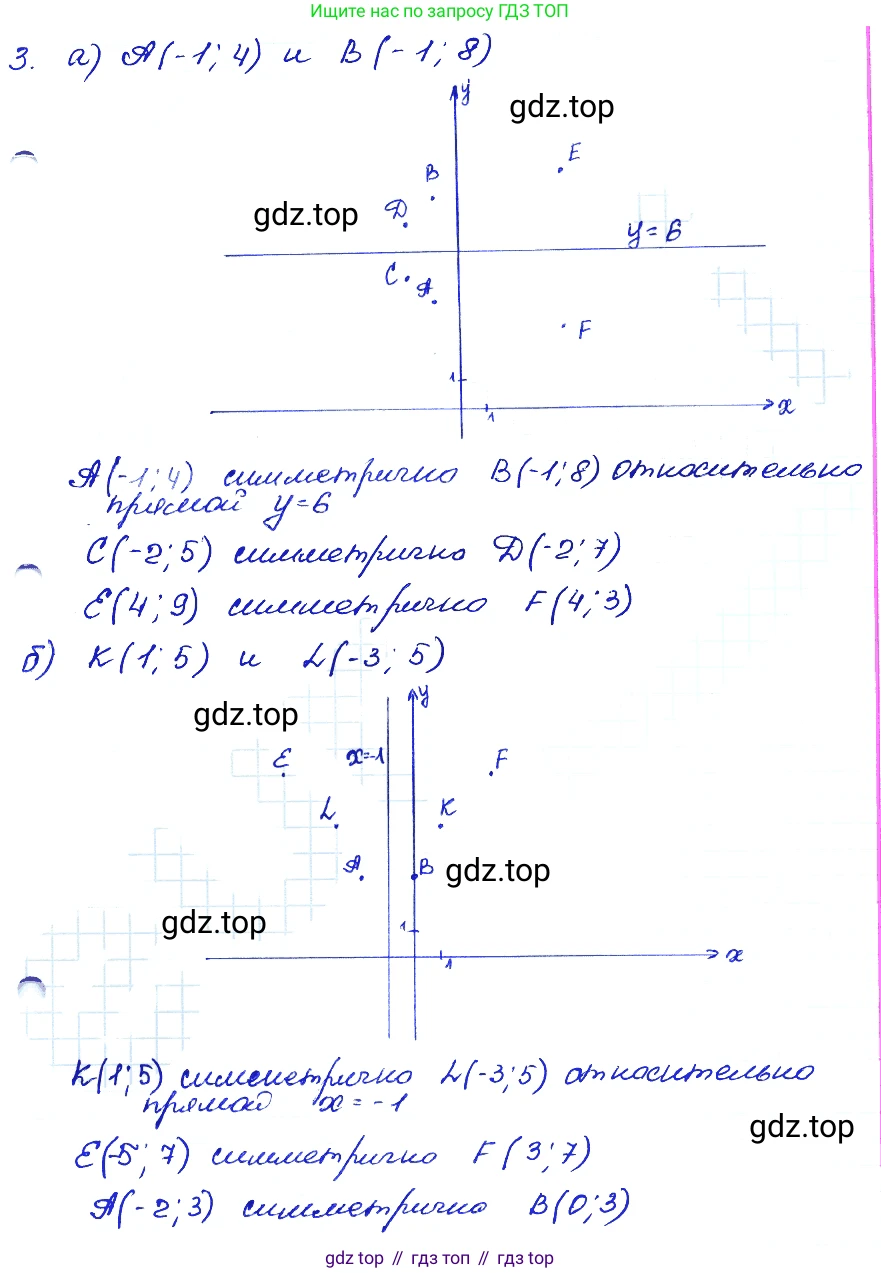 Ищите нас по запросу ГДЗ ТОП
3. а) A(-1; 4) и B(-1; 8)
y
gdz.top
E
B
gdz.top
D
y=6
C
A
F
1
x
1
A(-1; 4) симметрично B(-1; 8) относительно
прямой y=6
C(-2; 5) симметрично D(-2; 7)
E(4; 9) симметрично F(4; 3)
б) K(1; 5) и L(-3; 5)
y
gdz.top
E
x=-1
F
L
K
A
B
gdz.top
gdz.top
1
x
1
K(1; 5) симметрично L(-3; 5) относительно
прямой x=-1
gdz.top
E(-5; 7) симметрично F(3; 7)
A(-2; 3) симметрично B(0; 3)
gdz.top // гдз топ // гдз top